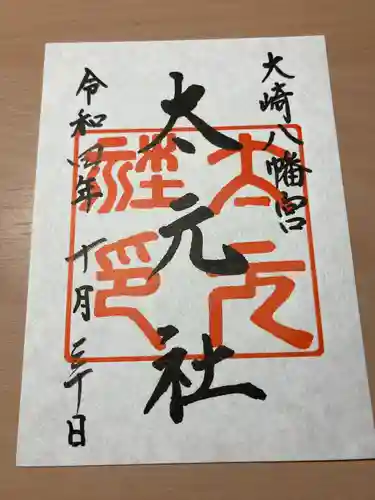 大崎八幡宮
太元社
令和四年十月二十日